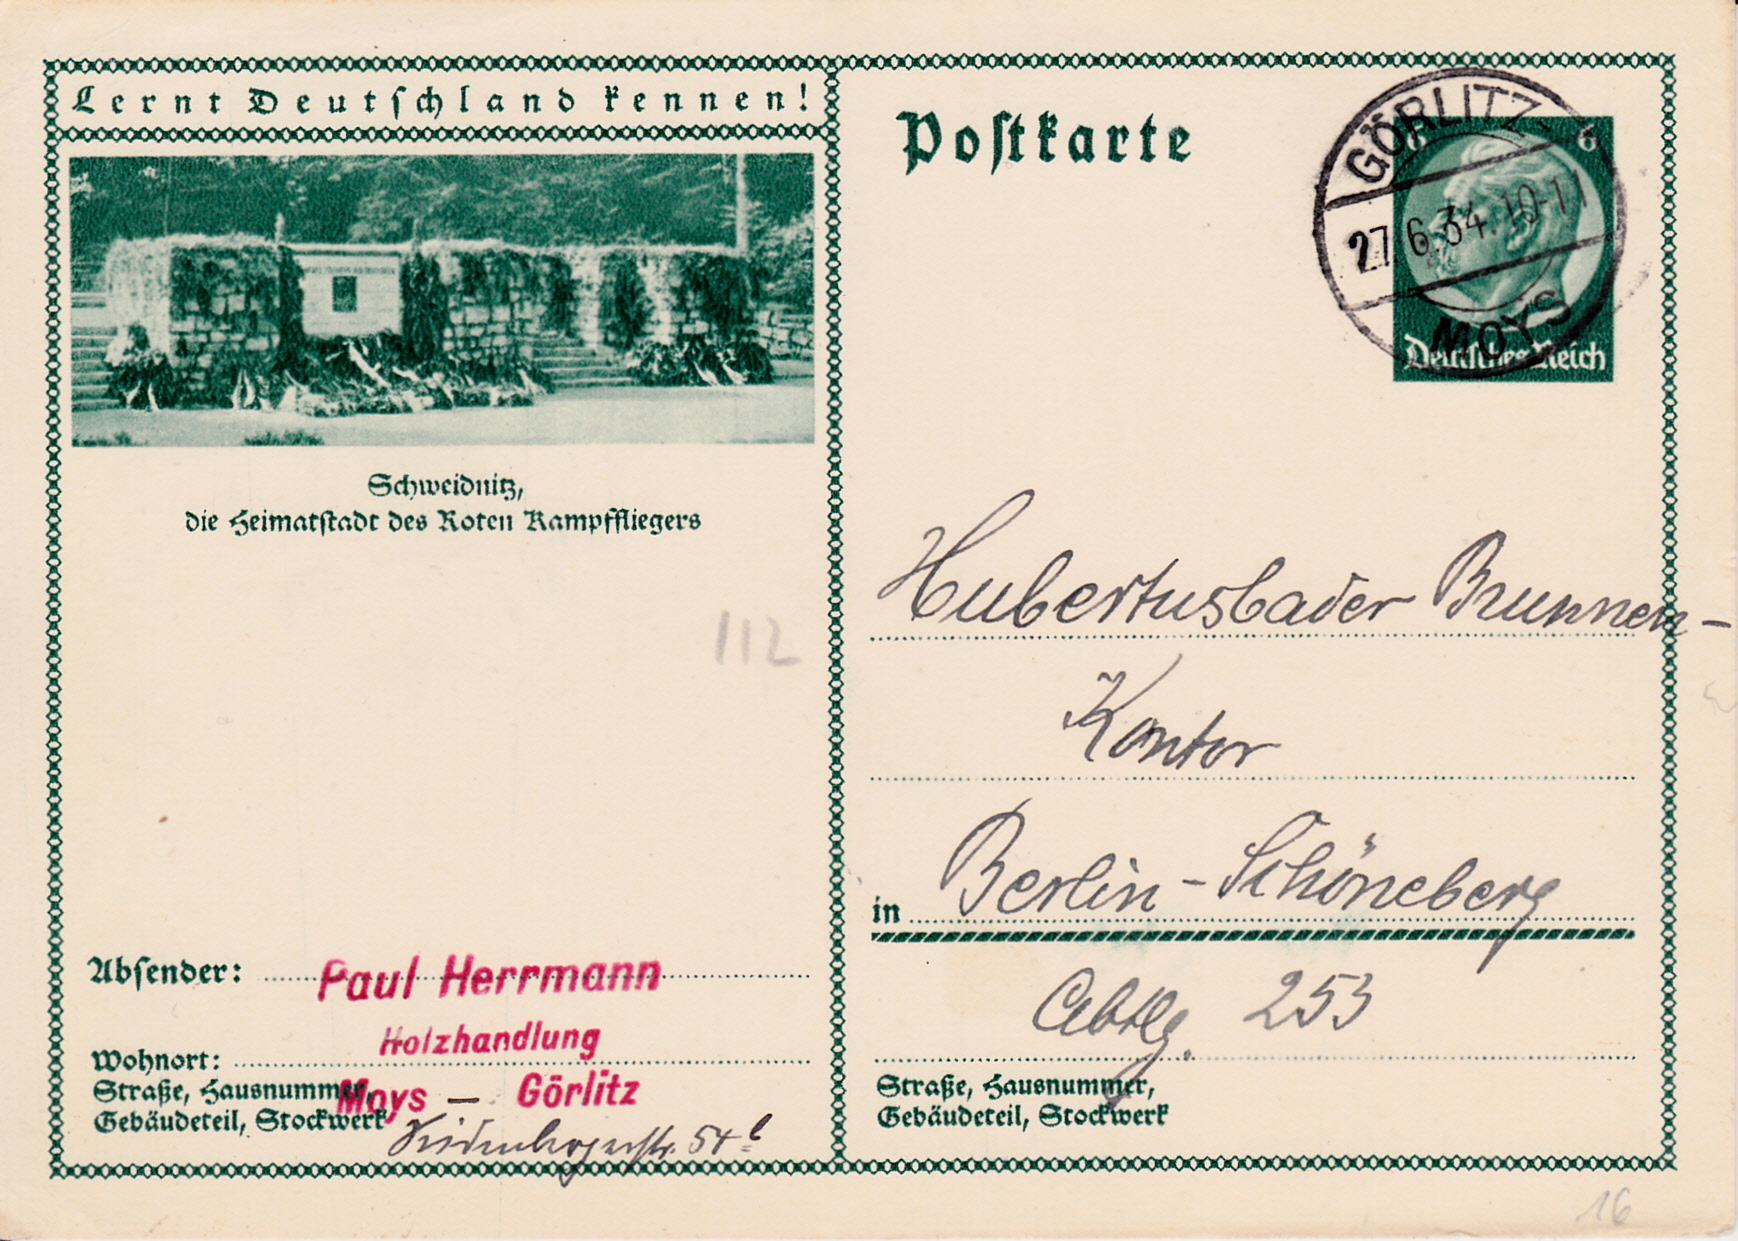 Lernt Deutschland kennen!
Schweidnitz,
die Heimatstadt des Roten Kampffliegers
112
Absender:
Paul Herrmann
Holzhandlung
Wohnort:
Moys — Görlitz
Straße, Hausnummer,
Gebäudeteil, Stockwerk
54 b
Postkarte
GÖRLITZ-
27.6.34.10-11
MOYS
6 6
Deutsches Reich
Hubertusbader Brunnen-
Kontor
in Berlin-Schöneberg
Abtlg. 253
Straße, Hausnummer,
Gebäudeteil, Stockwerk
16